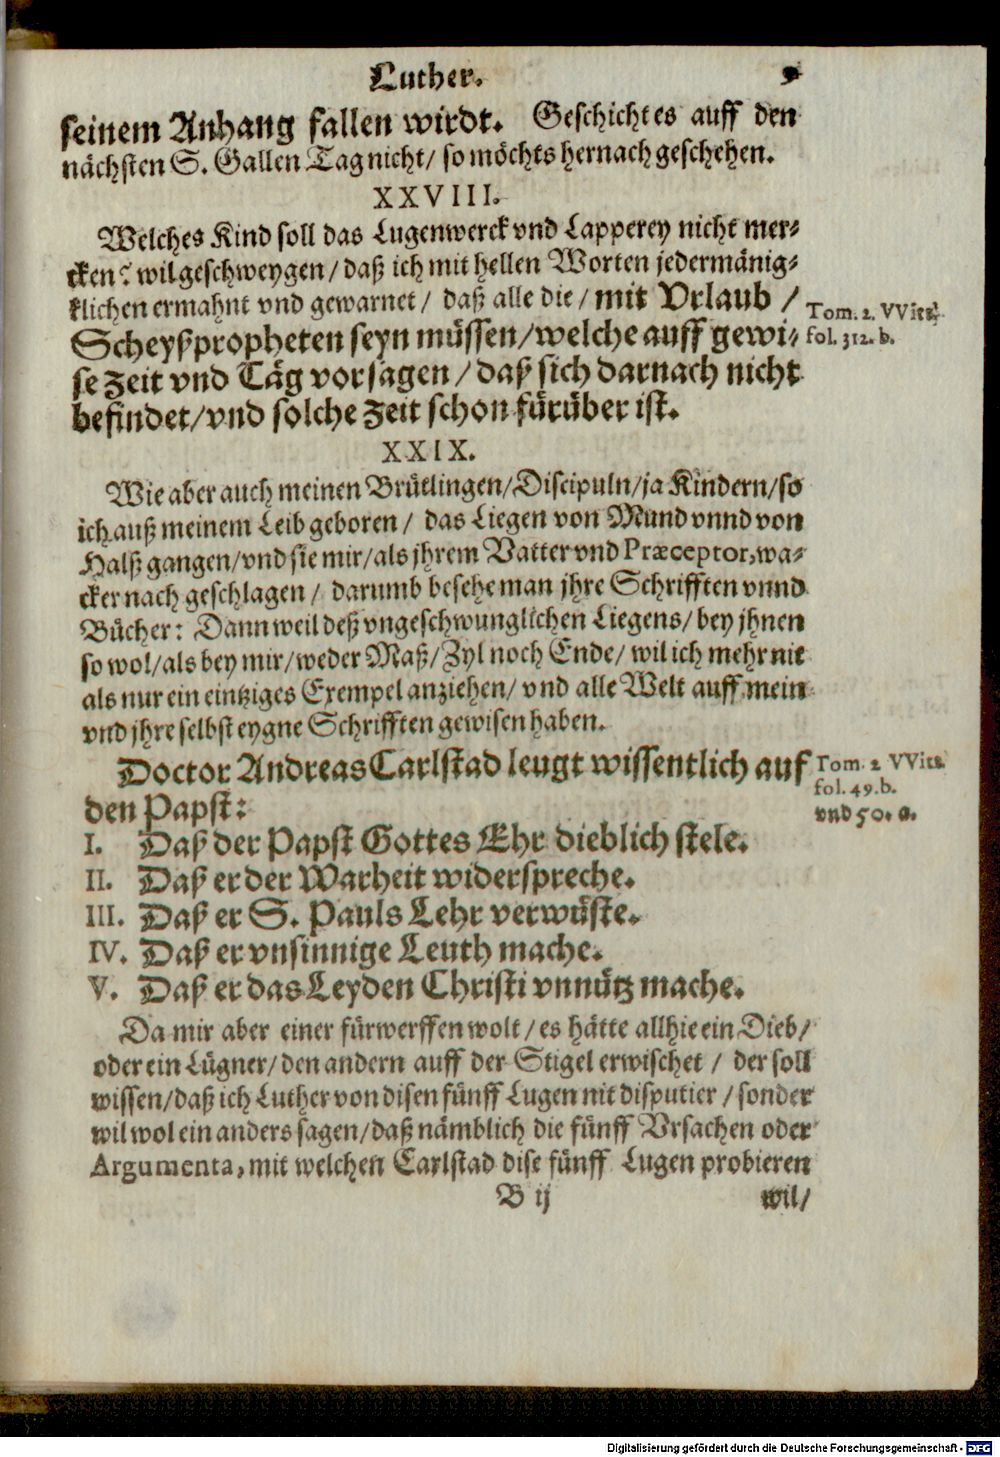 Luther. 9
seinem Anhang fallen wirdt. Geschicht es auff den
nächsten S. Gallen Tag nicht/ so möchts hernach geschehen.
XXVIII.
Welches Kind soll das Lugenwerck vnd Lapperey nicht mer-
cken? wil geschweygen/ daß ich mit hellen Worten jedermänig-
klichen ermahnt vnd gewarnet/ daß alle die/ mit Vrlaub /
Tom. 2. VVitt.
Scheyßpropheten seyn müssen/ welche auff gewi-
fol. 312. b.
se Zeit vnd Täg vorsagen/ daß sich darnach nicht
befindet/ vnd solche Zeit schon fürüber ist.
XXIX.
Wie aber auch meinen Brütlingen/ Discipuln/ ja Kindern/ so
ich auß meinem Leib geboren/ das Liegen von Mund vnnd von
Halß gangen/ vnd sie mir/ als jhrem Vatter vnd Præceptor, wa-
cker nach geschlagen/ darumb besehe man jhre Schrifften vnnd
Bücher: Dann weil deß vngeschwunglichen Liegens/ bey jhnen
so wol/ als bey mir/ weder Maß/ Zyl noch Ende/ wil ich mehr nit
als nur ein eintziges Exempel anziehen/ vnd alle Welt auff mein
vnd jhre selbst eygne Schrifften gewisen haben.
Doctor Andreas Carlstad leugt wissentlich auf
Tom. 2 VVitt.
den Papst:
fol. 49. b.
vnd 50. a.
I. Daß der Papst Gottes Ehr dieblich stele.
II. Daß er der Warheit widerspreche.
III. Daß er S. Pauls Lehr verwüste.
IV. Daß er vnsinnige Leuth mache.
V. Daß er das Leyden Christi vnnütz mache.
Da mir aber einer fürwerffen wolt/ es hätte allhie ein Dieb/
oder ein Lügner/ den andern auff der Stigel erwischet/ der soll
wissen/ daß ich Luther von disen fünff Lugen nit disputier/ sonder
wil wol ein anders sagen/ daß nämblich die fünff Vrsachen oder
Argumenta, mit welchen Carlstad dise fünff Lugen probieren
B ij wil/
Digitalisierung gefördert durch die Deutsche Forschungsgemeinschaft - DFG